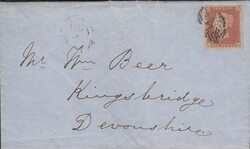 Mr Wm Beer
Kingsbridge
Devonshire